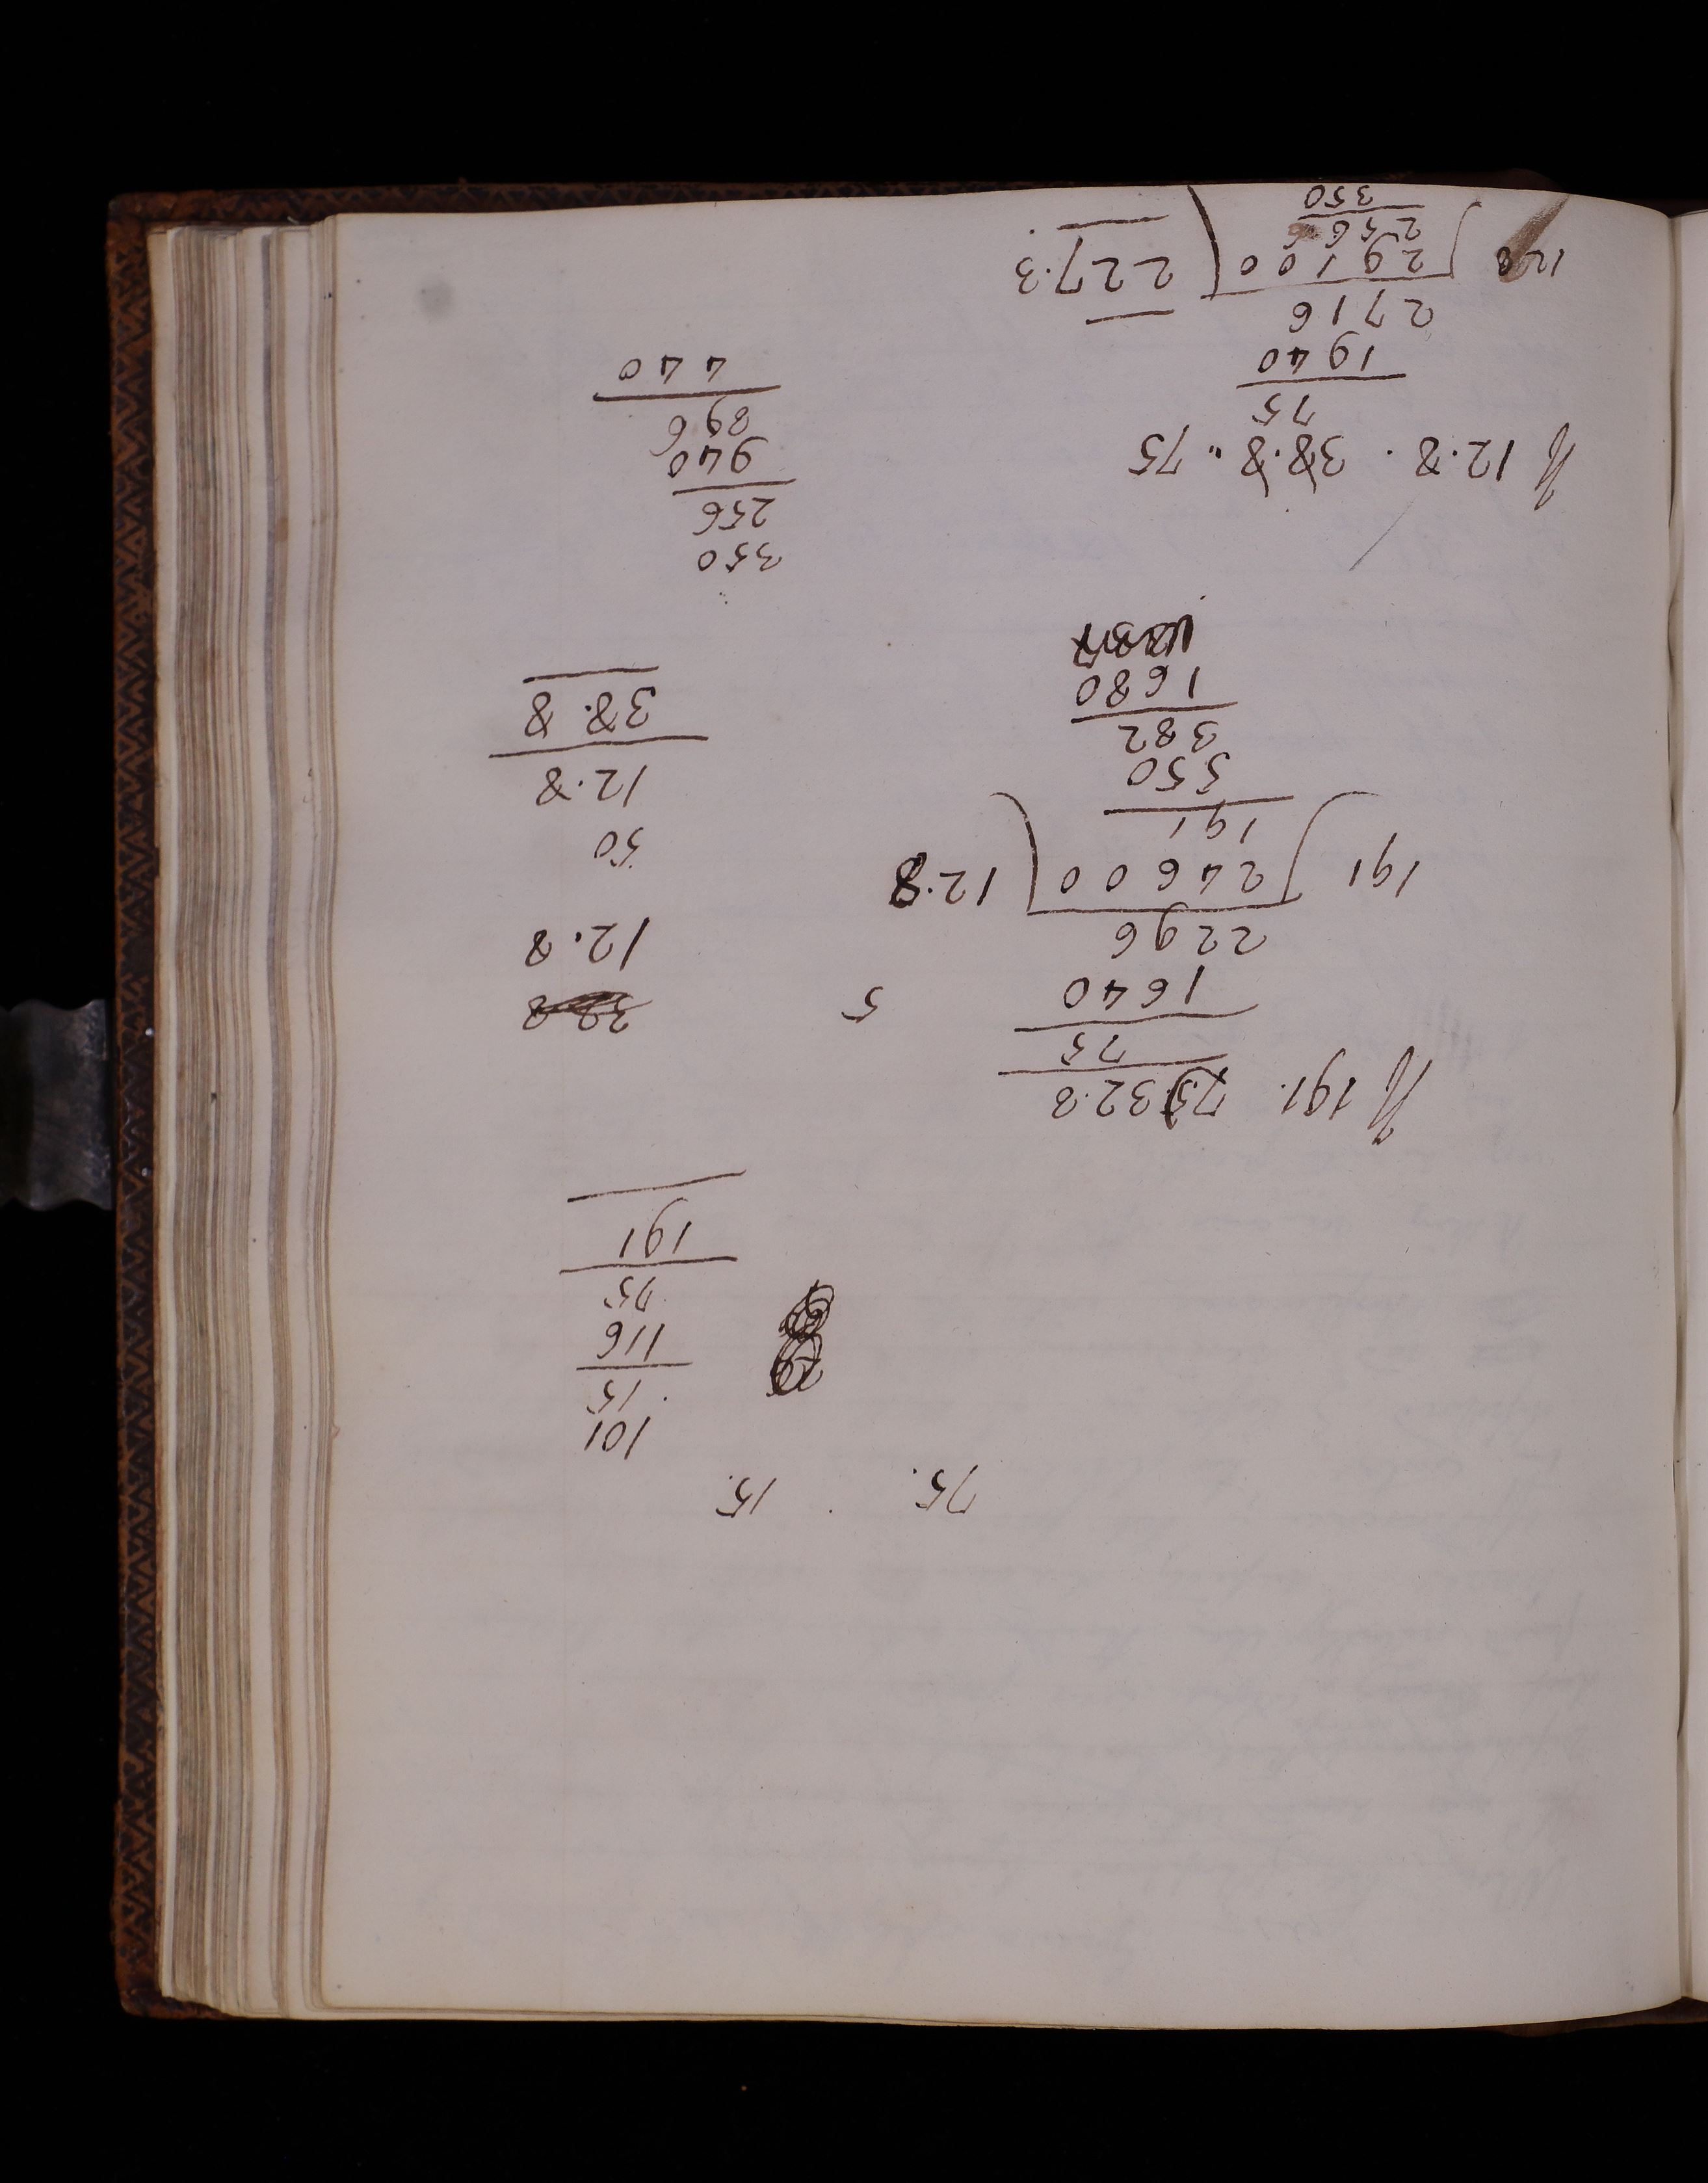 75. 15.
101
15
116
75
191
If 191. 75. 32.8
75
1640
5
2296
191 ) 24600 ( 12.8
191
550
382
1680
12.8
50
12.8
38.8
If 12.8 . 38.8 .. 75
75
1940
2716
12.8 ) 29100 ( 227.3
256
350
350
256
940
896
440